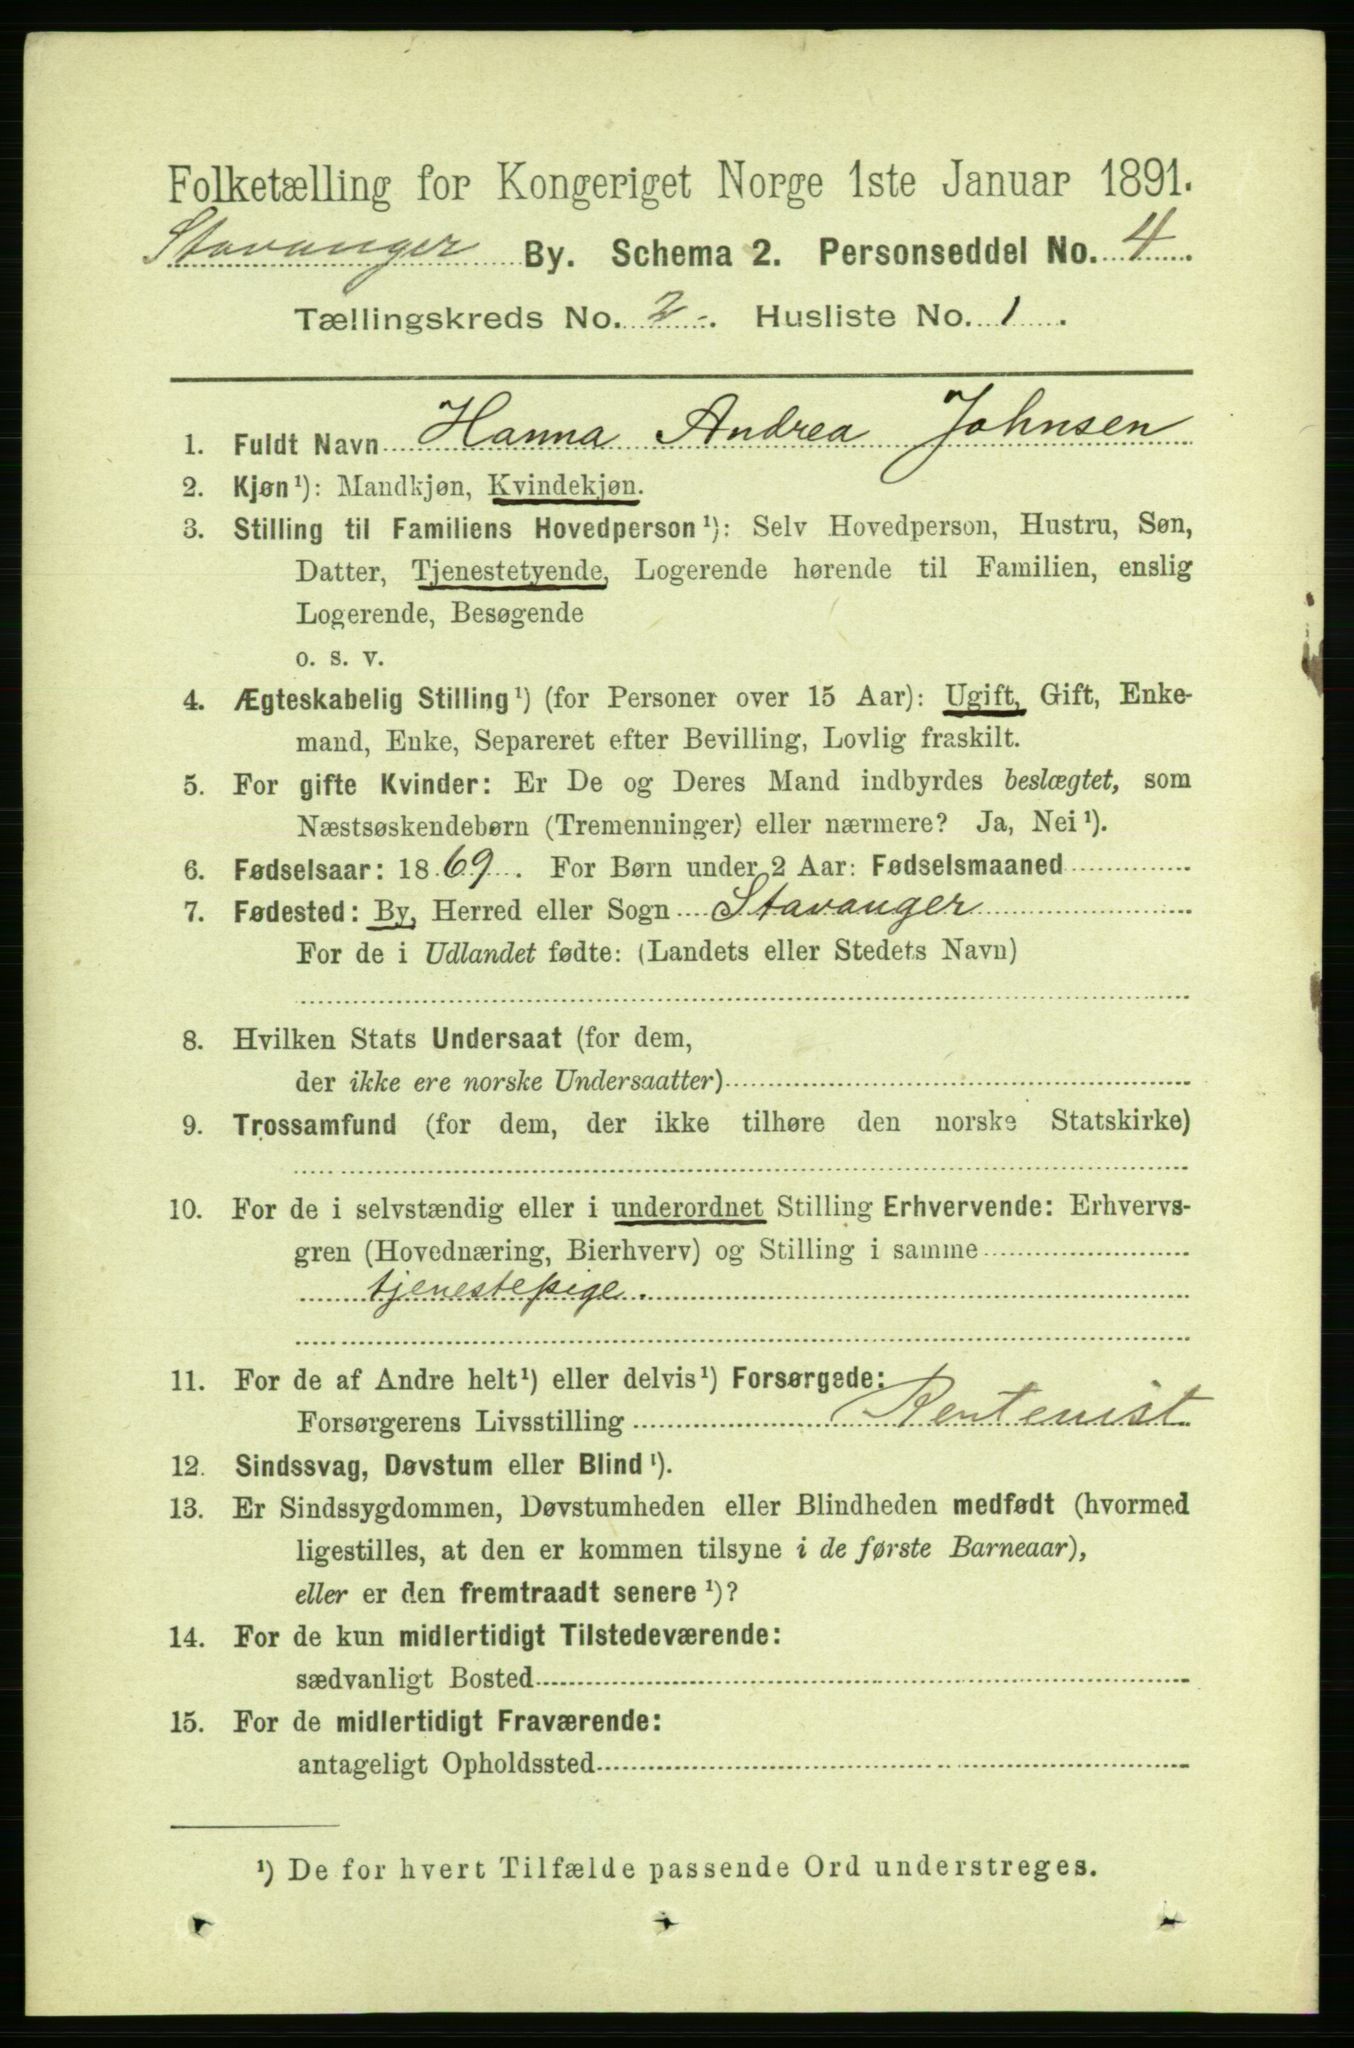 Folketælling for Kongeriget Norge 1ste Januar 1891.
Stavanger By. Schema 2. Personseddel No. 4.
Tællingskreds No. 2-. Husliste No. 1.
1. Fuldt Navn Hanna Andrea Johnsen
2. Kjøn¹): Mandkjøn, Kvindekjøn.
3. Stilling til Familiens Hovedperson¹): Selv Hovedperson, Hustru, Søn,
Datter, Tjenestetyende, Logerende hørende til Familien, enslig
Logerende, Besøgende
o. s. v.
4. Ægteskabelig Stilling¹) (for Personer over 15 Aar): Ugift, Gift, Enke-
mand, Enke, Separeret efter Bevilling, Lovlig fraskilt.
5. For gifte Kvinder: Er De og Deres Mand indbyrdes beslægtet, som
Næstsøskendebørn (Tremenninger) eller nærmere? Ja, Nei¹).
6. Fødselsaar: 1869. For Børn under 2 Aar: Fødselsmaaned
7. Fødested: By, Herred eller Sogn Stavanger
For de i Udlandet fødte: (Landets eller Stedets Navn)
8. Hvilken Stats Undersaat (for dem,
der ikke ere norske Undersaatter)
9. Trossamfund (for dem, der ikke tilhøre den norske Statskirke)
10. For de i selvstændig eller i underordnet Stilling Erhvervende: Erhvervs-
gren (Hovednæring, Bierhverv) og Stilling i samme
tjenestepige.
11. For de af Andre helt¹) eller delvis¹) Forsørgede:
Forsørgerens Livsstilling Rentenist
12. Sindssvag, Døvstum eller Blind¹).
13. Er Sindssygdommen, Døvstumheden eller Blindheden medfødt (hvormed
ligestilles, at den er kommen tilsyne i de første Barneaar),
eller er den fremtraadt senere¹)?
14. For de kun midlertidigt Tilstedeværende:
sædvanligt Bosted
15. For de midlertidigt Fraværende:
antageligt Opholdssted
¹) De for hvert Tilfælde passende Ord understreges.